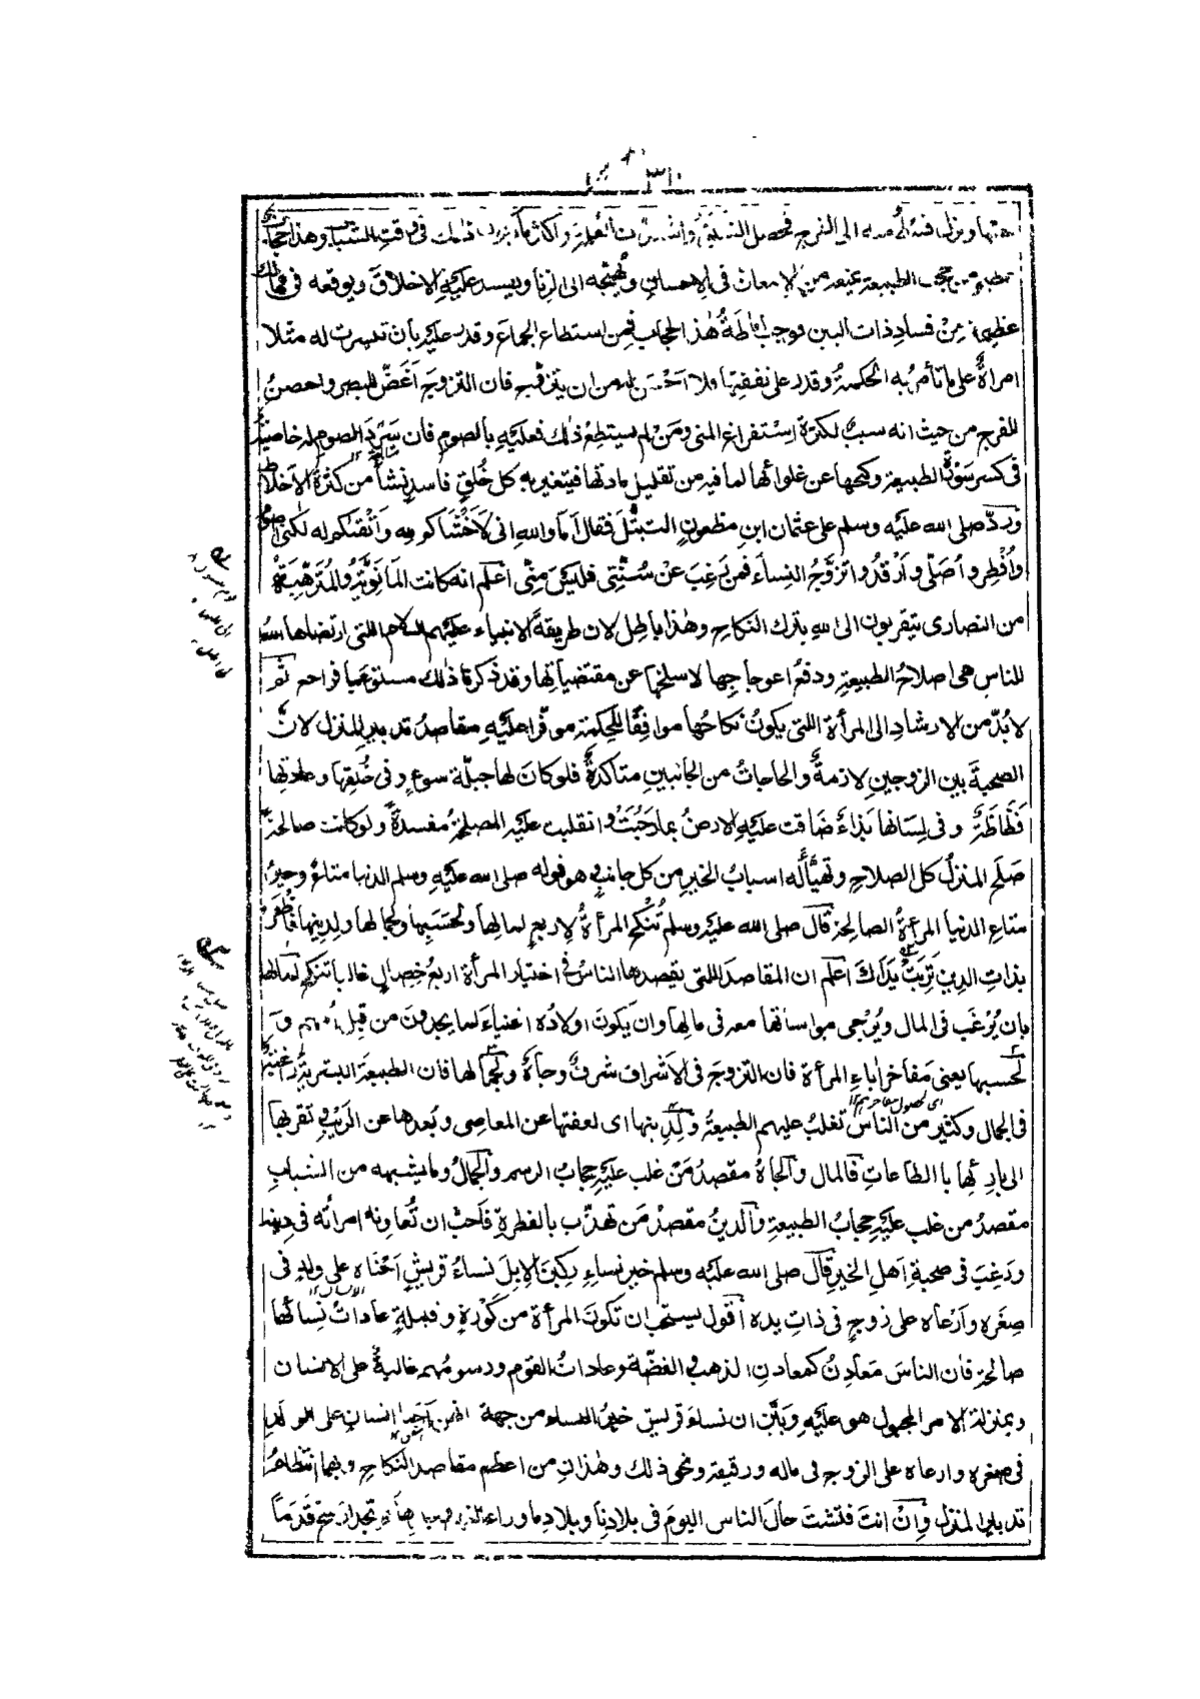 ٣١٠
ونزل منه الى الفرج فحصل الشبق واكثر ما يكون ذلك فى وقت الشباب وهذا حجاب
من حجب الطبيعة يمنعه من الامعان فى الاحسان ويهيجه الى الزنا ويفسد عليه الاخلاق ويوقعه فى مهالك
عظيمة من فساد ذات البين فوجب اماطة هذا الحجاب فمن استطاع الجماع وقدر عليه بان تيسرت له مثلا
امرأة على ما تأمر به الحكمة وقدر على نفقتها فلا احسن له من ان يتزوج فان التزوج اَغَضّ للبصر واحصن
للفرج من حيث انه سبب لكثرة استفراغ المنى ومَنْ لم يستطع ذلك فعليه بالصوم فان سَرْدَ الصوم له خاصية
فى كسر سَوْرة الطبيعة وكبحها عن غلوائها لما فيه من تقليل مادتها فيتغير به كل خُلقٍ فاسد نشأ من كثرة الاخلاط
وردّ صلى الله عليه وسلم على عثمان ابن مظعون التبتُّلَ فقال اَما والله انى لَاَخْشاكم لله واَتْقٰىكم له لكنى اصوم
واُفْطِر واُصَلّى واَرْقُدُ واتزوّجُ النساءَ فمن رغِبَ عن سُنّتى فليسَ منّى اعلم انه كانت المانَوِيّة والمُتَرَهّبَة
من النصارى يتقربون الى الله بترك النكاح وهٰذا باطل لان طريقة الانبياء عليهم السلام التى ارتضاها الله
للناس هى اصلاحُ الطبيعة ودفعُ اعوجاجِها لا سلخها عن مقتضياتها وقد ذكرنا ذلك مستوعبا فراجع ثم
لا بُدّ من الارشاد الى المرأة التى يكونُ نكاحُها موافِقًا للحكمة موفّرا عليه مقاصدُ تدبير المنزل لانّ
الصحبةَ بين الزوجين لازمةٌ والحاجاتُ من الجانبين متأكدةٌ فلو كانَ لها جِبِلّة سوءٍ وفى خُلقها وعادتها
فَظاظَةٌ وفى لِسانها بَذاءٌ ضَاقت عليه الارضُ بما رَحُبَتْ وانقلبت عليه المصلحةُ مفسدةً ولو كانت صالحةً
صَلَحَ المنزلُ كل الصلاح وتهيّأ له اسبابُ الخيرِ من كل جانب وهو قوله صلى الله عليه وسلم الدنيا متاعٌ وخيرُ
متاعِ الدنيا المرأةُ الصالحة قال صلى الله عليه وسلم تُنْكَح المرأةُ لاربعٍ لمالها ولحَسَبِها ولجمالها ولدِينِها فاظْفَرْ
بذاتِ الدينِ تَرِبَتْ يَداك اعلم ان المقاصدَ التى يقصدها الناسُ فى اختيار المرأة اربعُ خِصالٍ غالبا تنكح لمالها
بان يُرْغَب فى المال ويُرْجى مواساتها معه فى مالها وان يكونَ اولاده اغنياءَ لما يجدونَ من قِبَلِ امهم و
لحسبها يعنى مَفاخر اٰباءِ المرأة فان التزوجَ فى الاشراف شرفٌ وجاهٌ ولجمالها فان الطبيعةَ البشريةَ راغبة
اى لحصول مفاخرهم ١٢
فى الجمال وكثير من الناس تغلبُ عليهم الطبيعةُ ولدينها اى لعفتها عن المعاصى وبُعدها عن الرِيَب وتقربها
الى بارئها بالطاعاتِ فالمال والجاهُ مقصدُ مَنْ غلب عليه حجابُ الرسم والجمالُ وما يشبهه من الشباب
مقصدُ من غلب عليه حجابُ الطبيعة والدينُ مقصدُ مَن تهذّب بالفطرة فاَحبّ ان تُعاونه امرأتُه فى دينه
ورغِبَ فى صحبة اَهلِ الخيرِ قال صلى الله عليه وسلم خيرُ نساءٍ ركبنَ الابلَ نساءُ قريشٍ اَحْناه على ولدٍ فى
صِغَرِه واَرعاه على زوجٍ فى ذاتِ يده اقول يستحب ان تكونَ المرأة من كُورةٍ وقبيلةٍ عاداتُ نسائها
صالحة فان الناسَ مَعادِنُ كمعادنِ الذهب والفضة وعاداتُ القوم ورسومُهم غالبةٌ على الانسان
وبمنزلة الامر المجبول هو عليه وبَيَّنَ ان نساءَ قريش خيرُ النساء من جهة انهن اَحْنى انسان على الولد
فى صغره وارعاه على الزوج فى ماله ورقيقه ونحو ذلك وهٰذانِ من اعظم مقاصد النكاح وبهما انتظامُ
تدبير المنزل وانْ انتَ فتشتَ حالَ الناس اليومَ فى بلادِنا وبلادِ ماوراء النهر وغيرها لم تجد ارسخ قَدَمًا